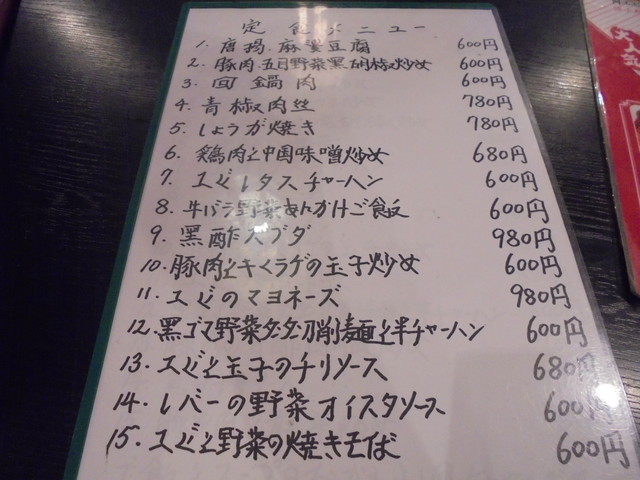 定食メニュー
1. 唐揚.麻婆豆腐 600円
2. 豚肉.五目野菜黒胡椒炒め 600円
3. 回鍋肉 600円
4. 青椒肉丝 780円
5. しょうが焼き 780円
6. 鶏肉と中国味噌炒め 680円
7. エビレタスチャーハン 600円
8. 牛バラ野菜あんかけご飯 600円
9. 黒酢スブタ 980円
10. 豚肉とキクラゲの玉子炒め 600円
11. エビのマヨネーズ 980円
12. 黒ゴマ野菜タンタン刀削麺と半チャーハン 600円
13. エビと玉子のチリソース 680円
14. レバーの野菜オイスタソース 600円
15. エビと野菜の焼きそば 600円